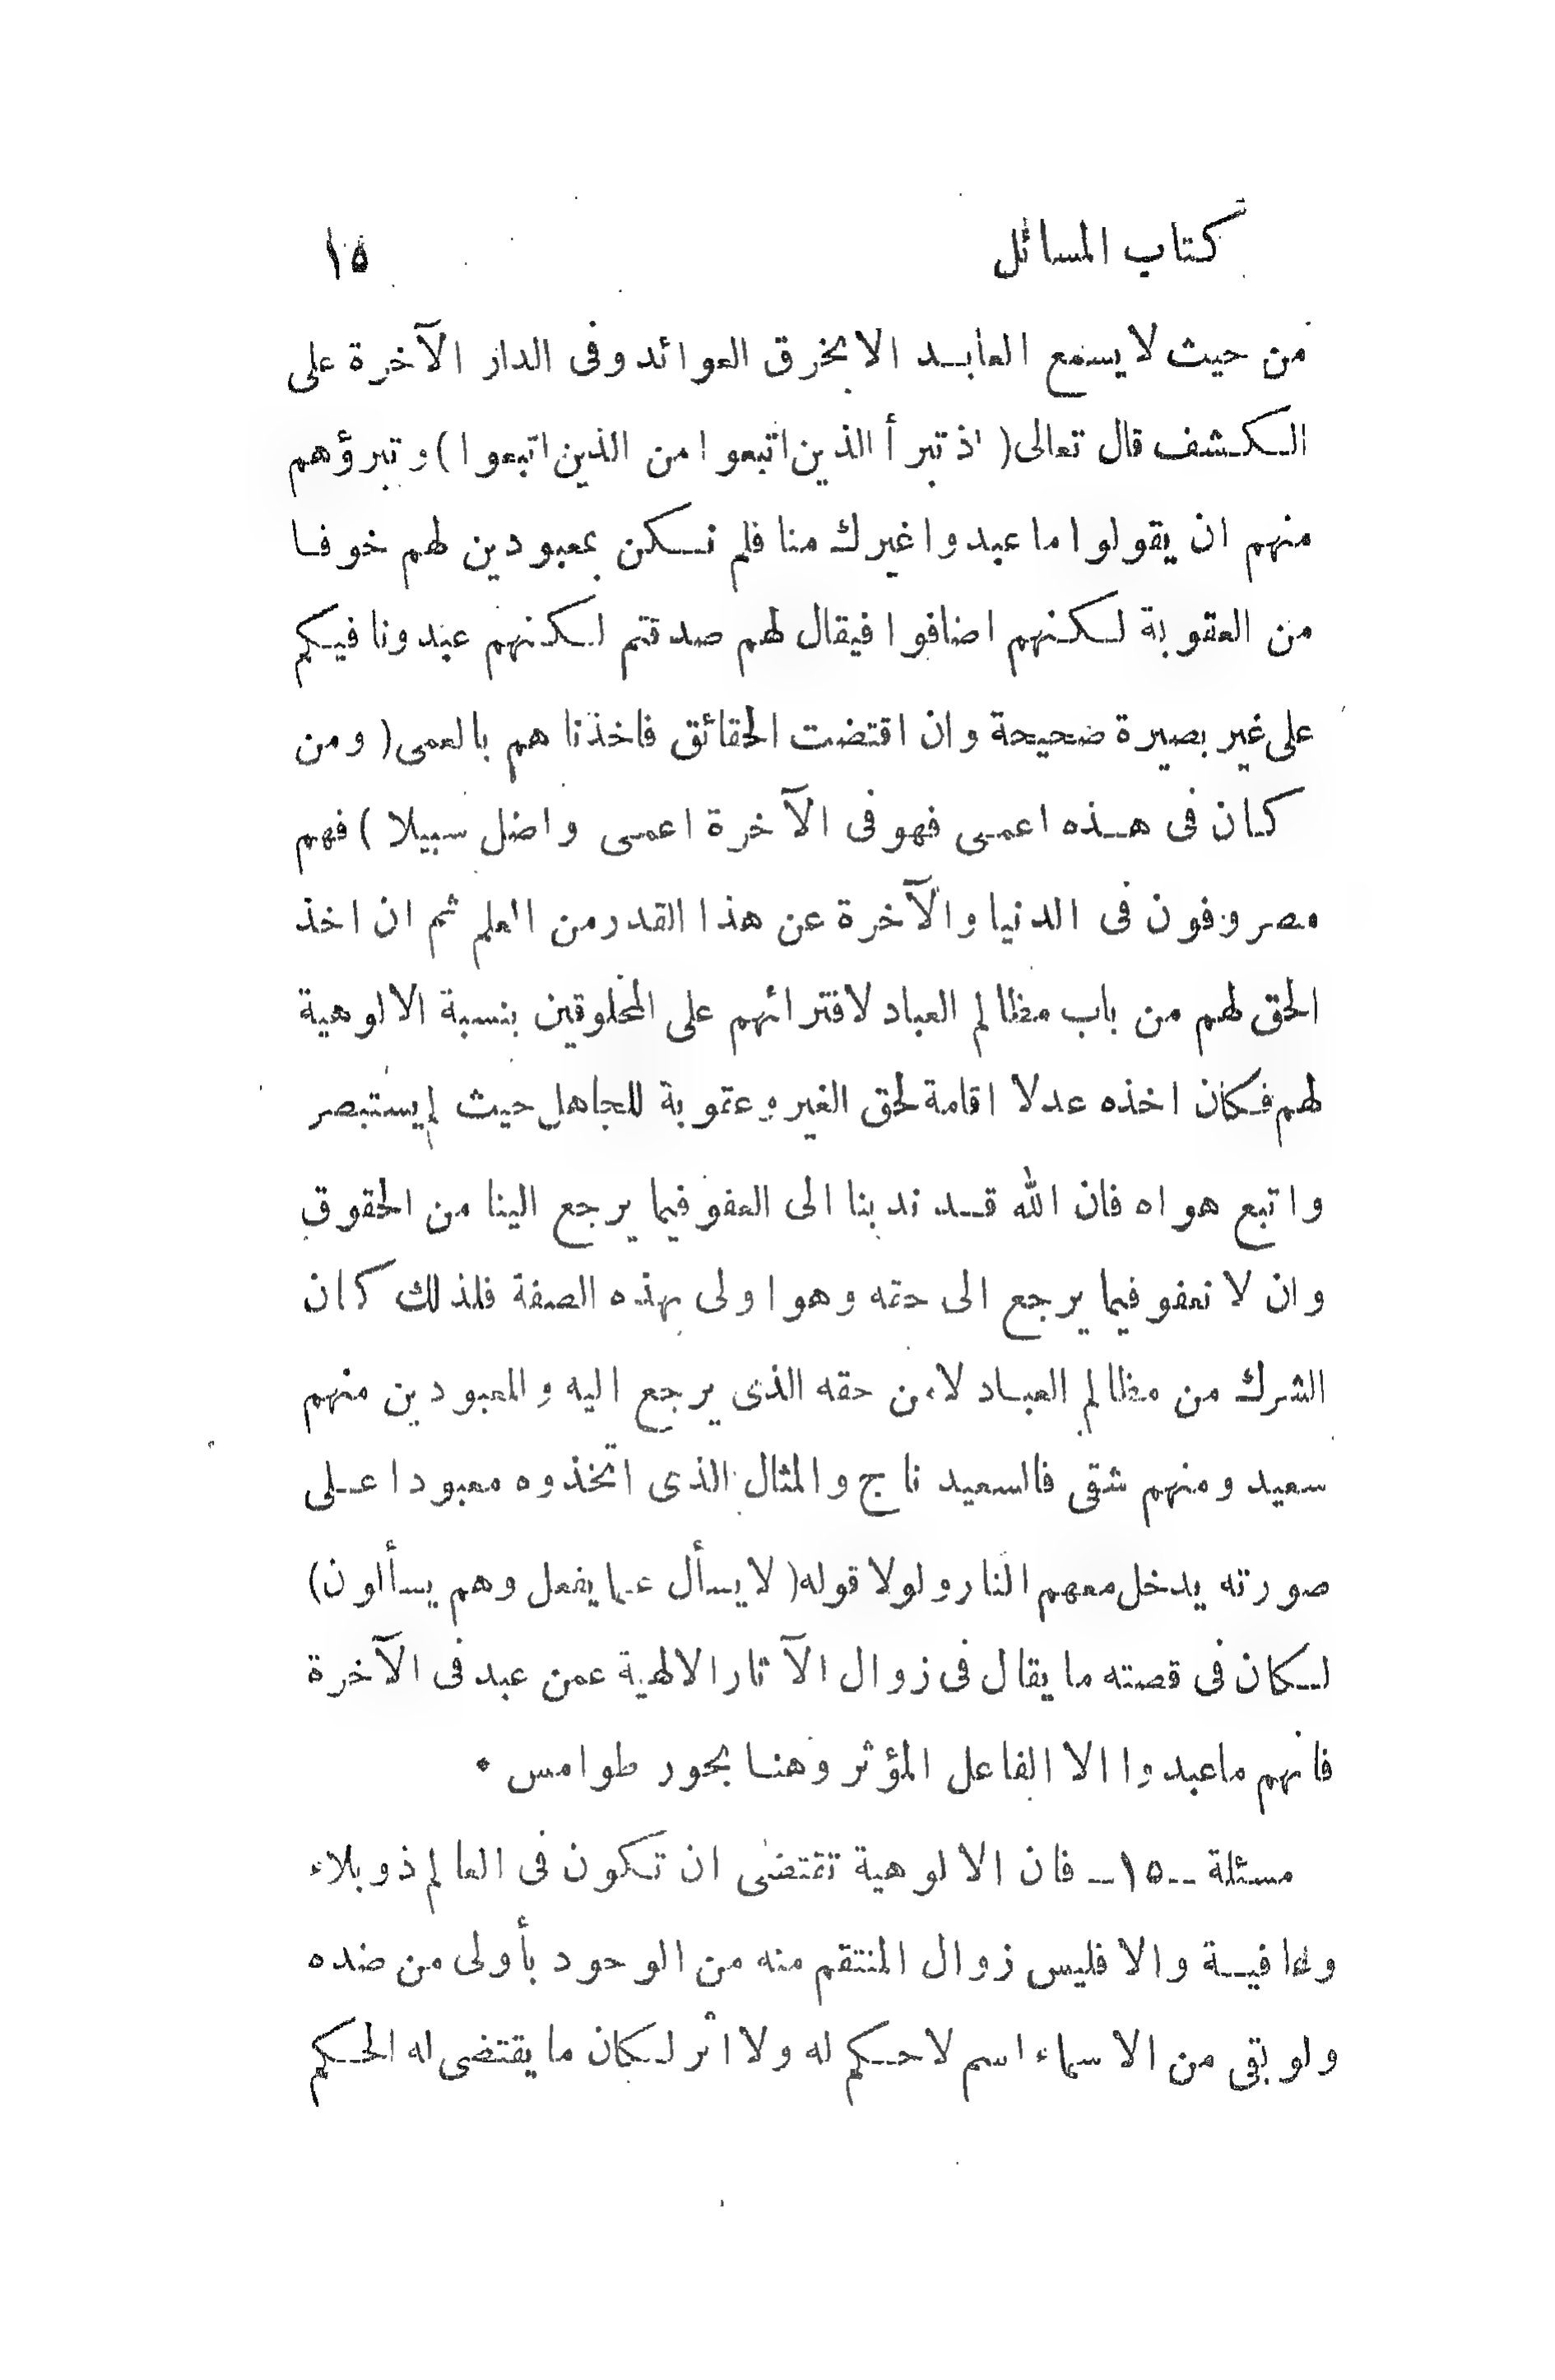 كتاب المسائل ١٥
من حيث لا يسمع العابد الا بخرق العوائد وفى الدار الآخرة على
الكشف قال تعالى ( اذ تبرأ الذين اتبعوا من الذين اتبعوا ) وتبرؤهم
منهم ان يقولوا ما عبدوا غيرك منا فلم نكن بمعبودين لهم خوفا
من العقوبة لكنهم اضافوا فيقال لهم صدقتم لكنهم عبدونا فيكم
على غير بصيرة صحيحة وان اقتضت الحقائق فاخذنا هم بالعمى ( ومن
كان فى هذه اعمى فهو فى الآخرة اعمى واضل سبيلا ) فهم
مصروفون فى الدنيا والآخرة عن هذا القدر من العلم ثم ان اخذ
الحق لهم من باب مظالم العباد لافترائهم على المخلوقين بنسبة الالوهية
لهم فكان اخذه عدلا اقامة لحق الغير وعقوبة للجاهل حيث لم يستبصر
واتبع هواه فان الله قد ندبنا الى العفو فيما يرجع الينا من الحقوق
وان لا نعفو فيما يرجع الى حقه وهو اولى بهذه الصفة فلذلك كان
الشرك من مظالم العباد لا من حقه الذى يرجع اليه والمعبودين منهم
سعيد ومنهم شقى فالسعيد ناج والمثال الذى اتخذوه معبودا على
صورته يدخل معهم النار ولولا قوله ( لا يسأل عما يفعل وهم يسألون )
لكان فى قصته ما يقال فى زوال الآثار الالهية عمن عبد فى الآخرة
فانهم ما عبدوا الا الفاعل المؤثر وهنا بحور طوامس ٠
مسئلة ــ ١٥ ــ فان الالوهية تقتضى ان تكون فى العالم ذو بلاء
وعافية والا فليس زوال المنتقم منه من الوجود بأولى من ضده
ولو بقى من الاسماء اسم لا حكم له ولا اثر لكان ما يقتضى له الحكم